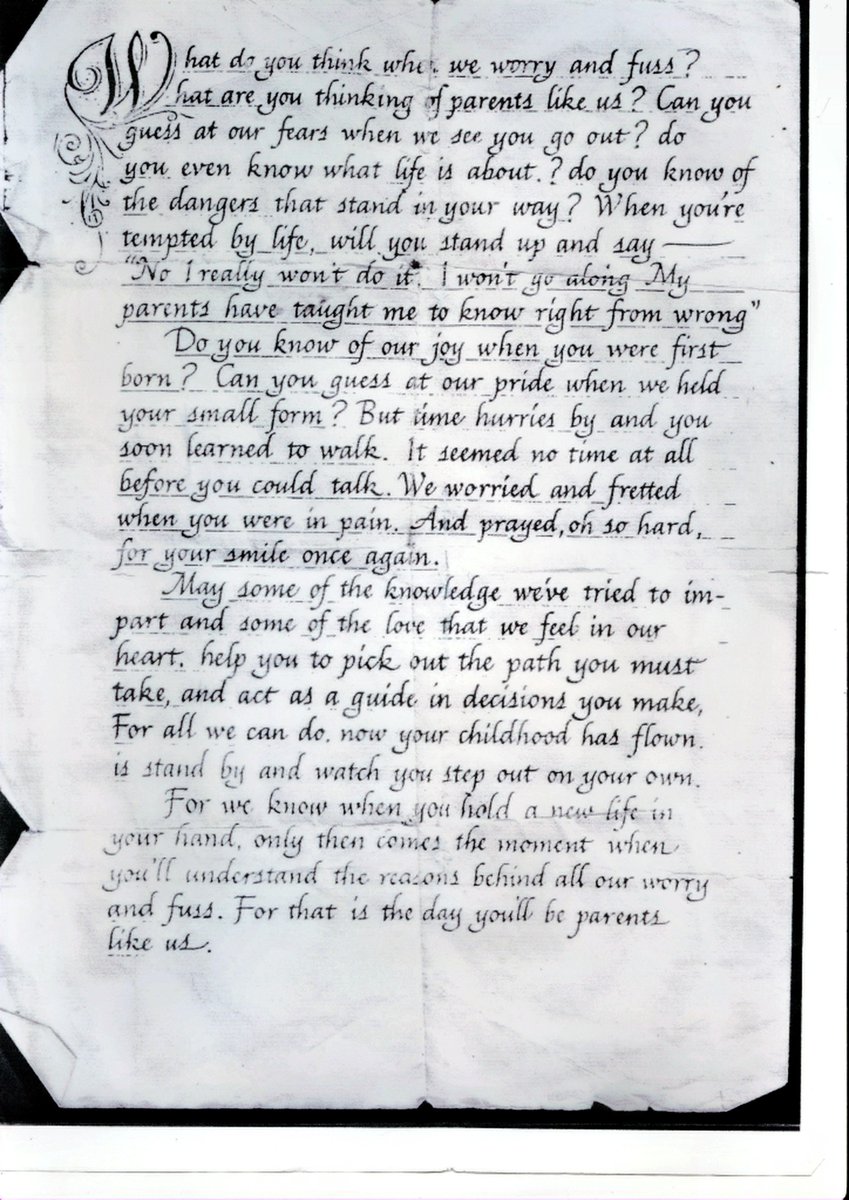 What do you think when we worry and fuss?
What are you thinking of parents like us? Can you
guess at our fears when we see you go out? do
you even know what life is about.? do you know of
the dangers that stand in your way? When you're
tempted by life, will you stand up and say —
"No I really won't do it. I won't go along My
parents have taught me to know right from wrong"
Do you know of our joy when you were first
born? Can you guess at our pride when we held
your small form? But time hurries by and you
soon learned to walk. It seemed no time at all
before you could talk. We worried and fretted
when you were in pain. And prayed, oh so hard,
for your smile once again.
May some of the knowledge we've tried to im-
part and some of the love that we feel in our
heart. help you to pick out the path you must
take, and act as a guide in decisions you make,
For all we can do. now your childhood has flown.
is stand by and watch you step out on your own.
For we know when you hold a new life in
your hand, only then comes the moment when
you'll understand the reasons behind all our worry
and fuss. For that is the day you'll be parents
like us.